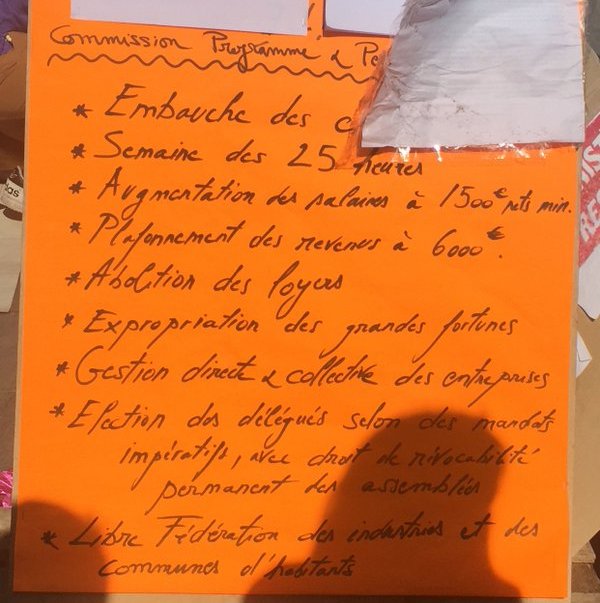 Commission Programme & Pe
* Embauche des c
* Semaine des 25 heures
* Augmentation des salaires à 1500€ nets min.
* Plafonnement des revenus à 6000€.
* Abolition des loyers
* Expropriation des grandes fortunes
* Gestion directe & collective des entreprises
* Election des délégués selon des mandats
impératifs, avec droit de révocabilité
permanent des assemblées
* Libre Fédération des industries et des
communes d'habitants